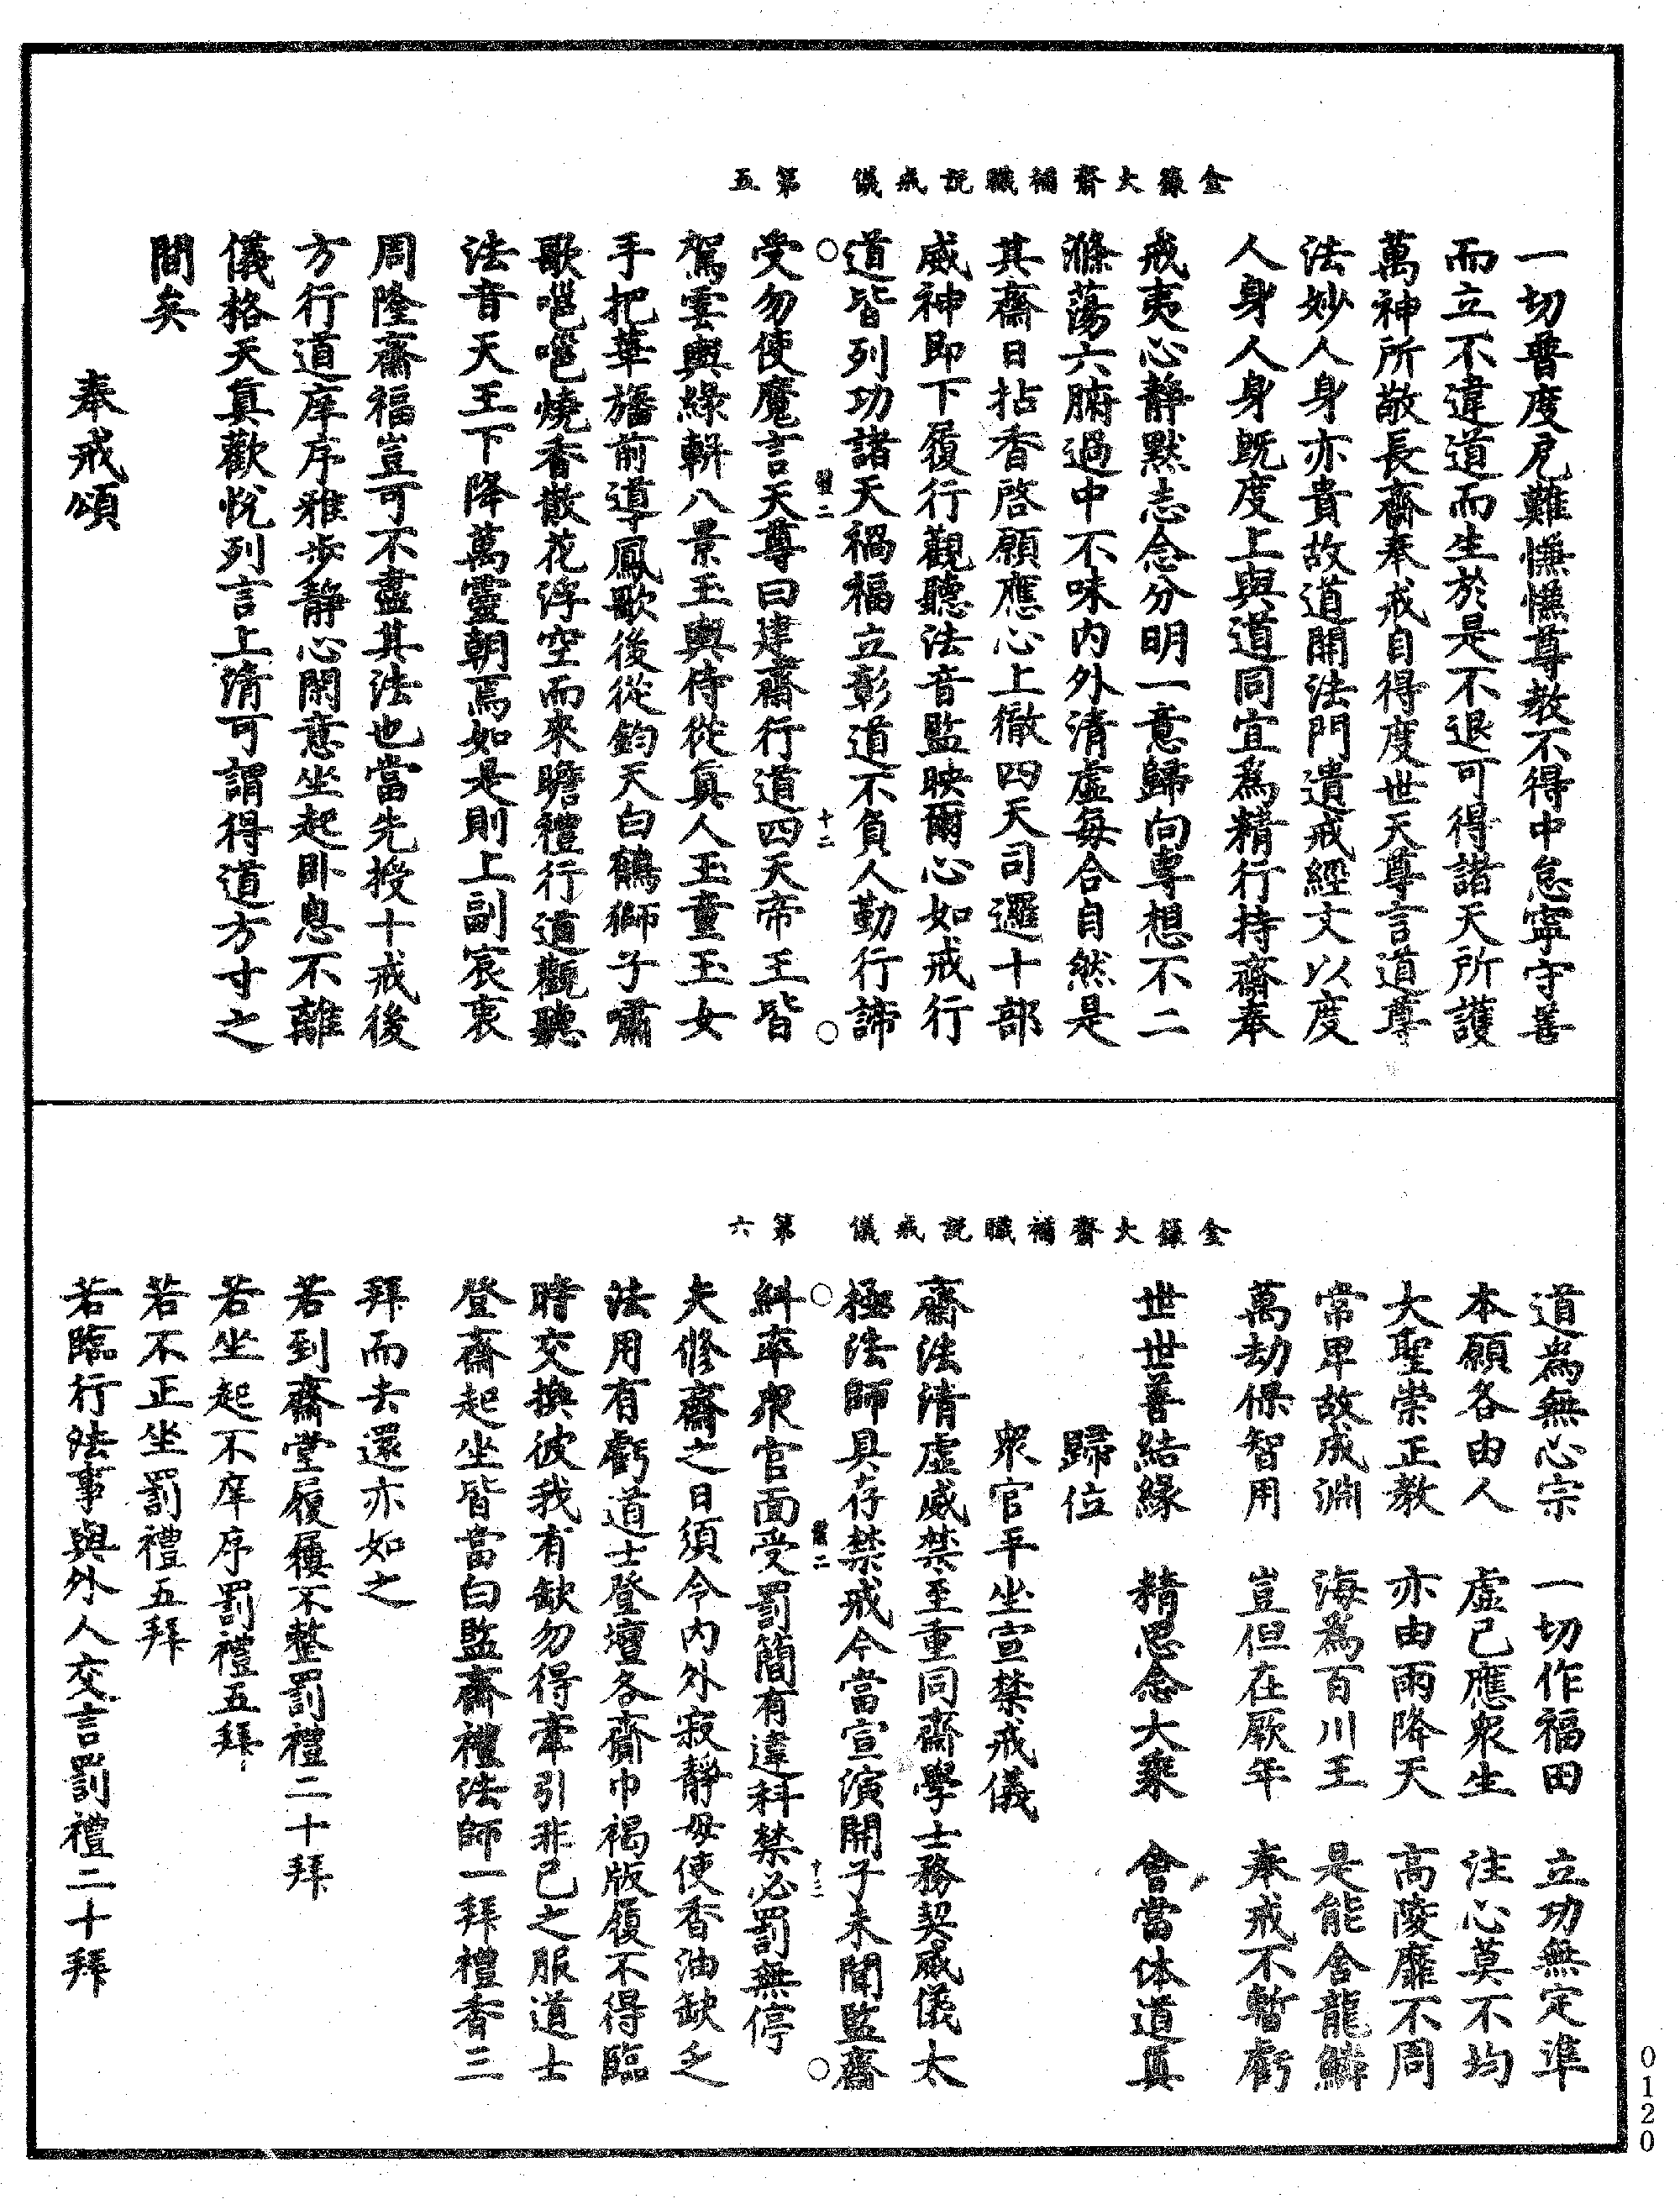 金籙大齋補職說戒儀　第五
一切普度厄難憔憔尊教不得中怠寧守善
而立不違道而生於是不退可得諸天所護
萬神所敬長齋奉戒自得度世天尊言道尊
法妙人身亦貴故道開法門遺戒經文以度
人身人身既度上與道同宜爲精行持齋奉
戒夷心靜默志念分明一意歸向專想不二
滌蕩六腑過中不味內外清虛每合自然是
其齋日拈香啓願應心上徹四天司邏十部
威神即下履行觀聽法音監映爾心如戒行
道皆列功諸天禍福立彰道不負人勤行諦
二　十二
受勿使魔言天尊曰建齋行道四天帝王皆
駕雲輿綠輧八景玉輿侍從眞人玉童玉女
手把華旛前導鳳歌後從鈞天白鶴獅子嘯
歌嗈嗈燒香散花浮空而來瞻禮行道觀聽
法音天王下降萬靈朝焉如是則上副宸衷
周隆齋福豈可不盡其法也當先授十戒後
方行道庠序雅步靜心閑意坐起臥息不離
儀格天眞歡悅列言上清可謂得道方寸之
間矣
奉戒頌
金籙大齋補職說戒儀　第六
道為無心宗　一切作福田　立功無定準
本願各由人　虛己應衆生　注心莫不均
大聖崇正教　亦由雨降天　高陵靡不周
常卑故成淵　海爲百川王　是能含龍鱗
萬劫保智用　豈但在厥年　奉戒不暫虧
世世善結緣　精思念大乘　會當体道眞
歸位
衆官平坐宣禁戒儀
齋法清虛威禁至重同齋學士務契威儀太
極法師具存禁戒今當宣演開子未聞監齋
二　十三
糾率衆官面受罰簡有違科禁必罰無停
夫修齋之日須令內外寂靜毋使香油缺乏
法用有虧道士登壇各齋巾褐版履不得臨
時交換彼我有缺勿得牽引非己之服道士
登齋起坐皆當白監齋禮法師一拜禮香三
拜而去還亦如之
若到齋堂履屨不整罰禮二十拜
若坐起不庠序罰禮五拜
若不正坐罰禮五拜
若臨行法事與外人交言罰禮二十拜
0120